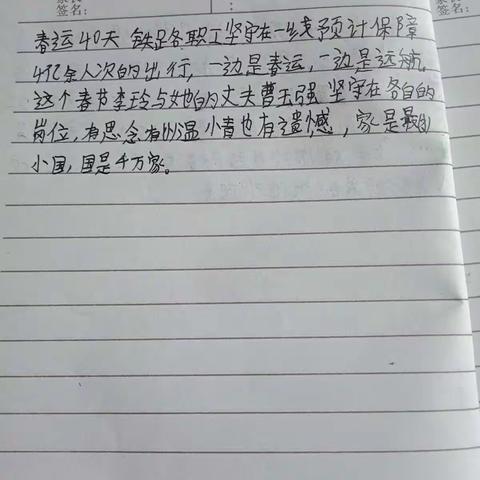 签名:
:
签名:
春运40天 铁足各职工坚守在一线预计保障
4亿余人次的出行，一边是春运，一边是远航，
这个春节李玲与她的丈夫曹玉强 坚守在各自的
岗位，有思念有温 也有遗憾，家是最的
小国，国是千万家。